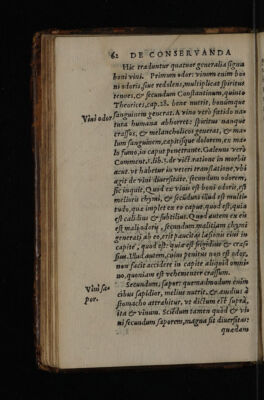 62 DE CONSERVANDA
Hic traduntur quatuor generalia signa
boni vini. Primum odor: vinum enim bo
ni odoris, siue redolens, multiplicat spiritus
tenues, & secundum Constantinum, quinto
Theorices, cap. 28. bene nutrit, bonúmque
Vini odor sanguinem generat. A vino verò fœtido na-
tura humana abhorret: spiritus nanque
crassos, & melancholicos generat, & ma-
lum sanguinem, capitísque dolorem, ex ma-
lo fumo, in caput penetrante. Galenus verò
Comment. 3. lib. 3. de vict. ratione in morbis
acut. vt habetur in veteri translatione, vbi
agit de vini diuersitate, secundum odorem,
sic inquit, Quod ex vinis est boni odoris, est
melioris chymi, & secũdum illud est multi-
tudo, quæ implet ex eo caput, quod est, quia
est calidius & subtilius. Quod autem ex eis
est mali odoris, secundum malitiam chymi
generati ab eo, erit paucitas læsionis eius in
capite, quod est: quia est frigidius & cras-
sius. Illud autem, cuius penitus non est odor,
non facit accidere in capite aliquid omni-
no, quoniam est vehementer crassum.
Vini sa-
por.
Secundum, sapor: quemadmodum enim
cibus sapidior, melius nutrit, & auidius à
stomacho attrahitur, vt dictum est suprà,
ita & vinum. Sciẽdum tamen quòd & vi-
ni secundum saporem, magna sit diuersitas:
quædam